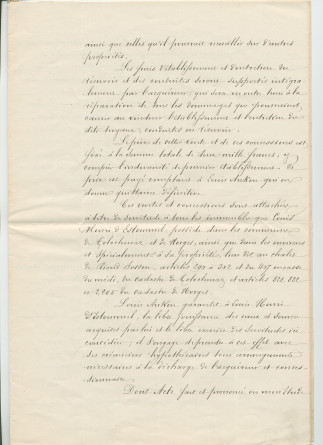 ainsi que celles qu'il pourrait recueillir sur d'autres
propriétés.
Les frais d'établissement et d'entretien du
réservoir et des conduites seront supportés intégra
lement par l'acquéreur qui sera en outre tenu à la
réparation de tous les dommages que pourraient
causer au vendeur l'établissement et l'entretien du
dits tuyaux, conduites ou réservoir.
Le prix de cette vente et de ces concessions est
fixé à la somme totale de deux mille francs, y
compris l'indemnité de premier établissement. Ce
prix est payé comptant à Louis qui en
donne quittance définitive.
Ces ventes et concessions sont attachées,
à titre de servitude à tous les immeubles que Louis
Henri d' possède dans les communes
de et de ainsi que dans les environs
et spécialement à la propriété, lieu dit au chalet
de articles 299 à 302 et du 417
du cadastre de et articles
du cadastre de
Louis garantit à Louis Henri
la libre jouissance des eaux et sources
acquises par lui et le libre exercice des servitudes ci
concédées; il s'engage à prendre à cet effet avec
ses créanciers hypothécaires tous arrangements
nécessaires à la décharge de l'acquéreur et conces
sionnaire.
Dont Acte, fait et prononcé en mon étude